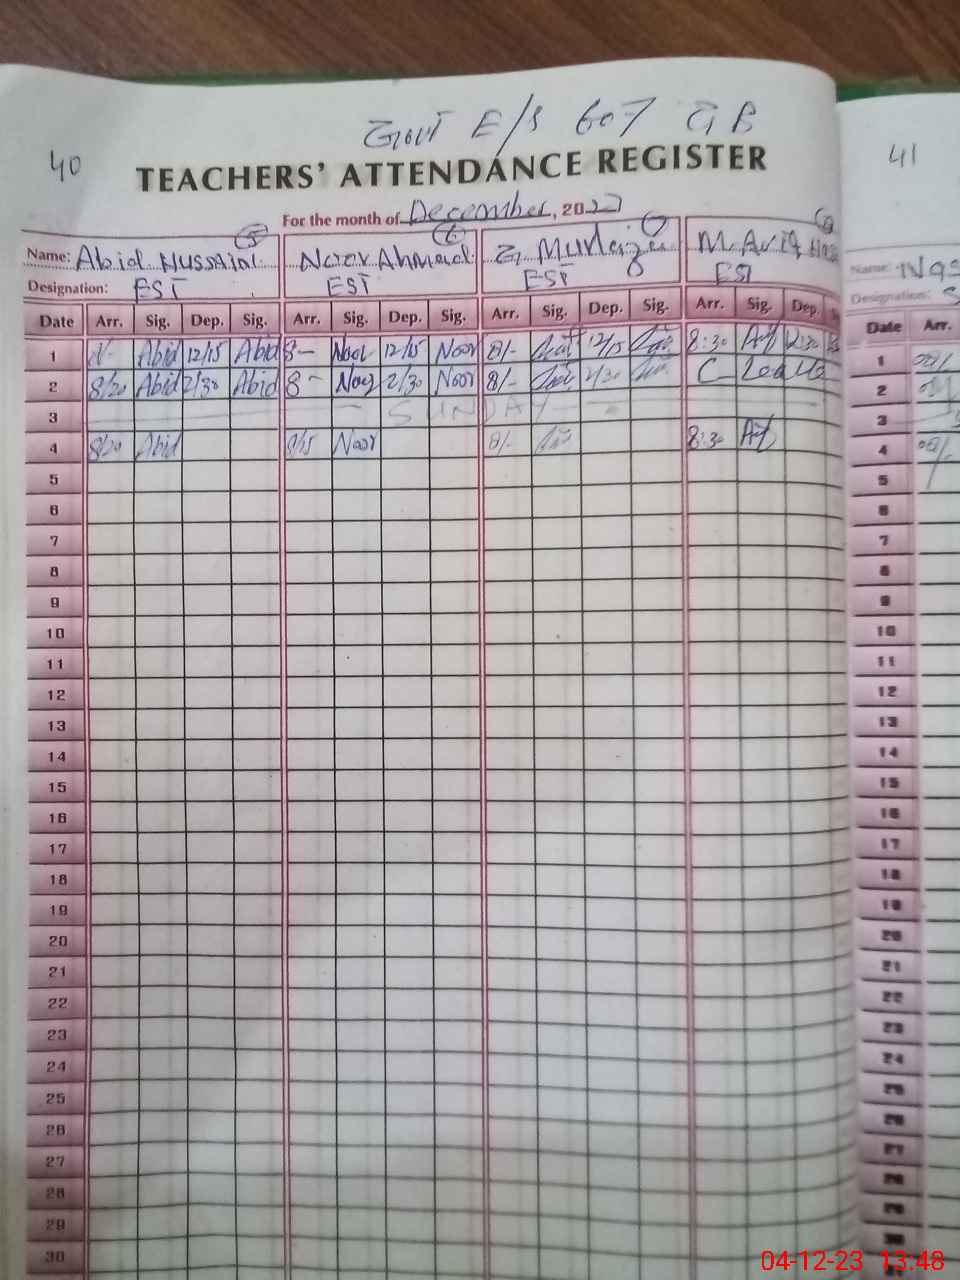 Govt E/S 607 GB
40
41
TEACHERS' ATTENDANCE REGISTER
For the month of December, 20
5 6 7
Name: Abid Hussain Noor Ahmad G. Murtaza M.
Name:
Designation: EST EST EST EST
Designation:
Date Arr. Sig. Dep. Sig. Arr. Sig. Dep. Sig. Arr. Sig. Dep. Sig. Arr. Sig. Dep.
Date Arr.
1 Abid 12/15 Abid 8 - Noor 12/15 Noor 8/- 12/15 8:30 12:30
1
2 8/20 Abid 2/30 Abid 8 - Noor 2/30 Noor 8/- 2/30 C Leave
2
3 SUNDAY
3
4 8/20 Abid 8/15 Noor 8/- 8:30
4
5
5
6
6
7
7
8
8
9
9
10
10
11
11
12
12
13
13
14
14
15
15
16
16
17
17
18
18
19
19
20
20
21
21
22
22
23
23
24
24
25
25
26
26
27
27
28
28
29
29
30
30
04-12-23 13:48